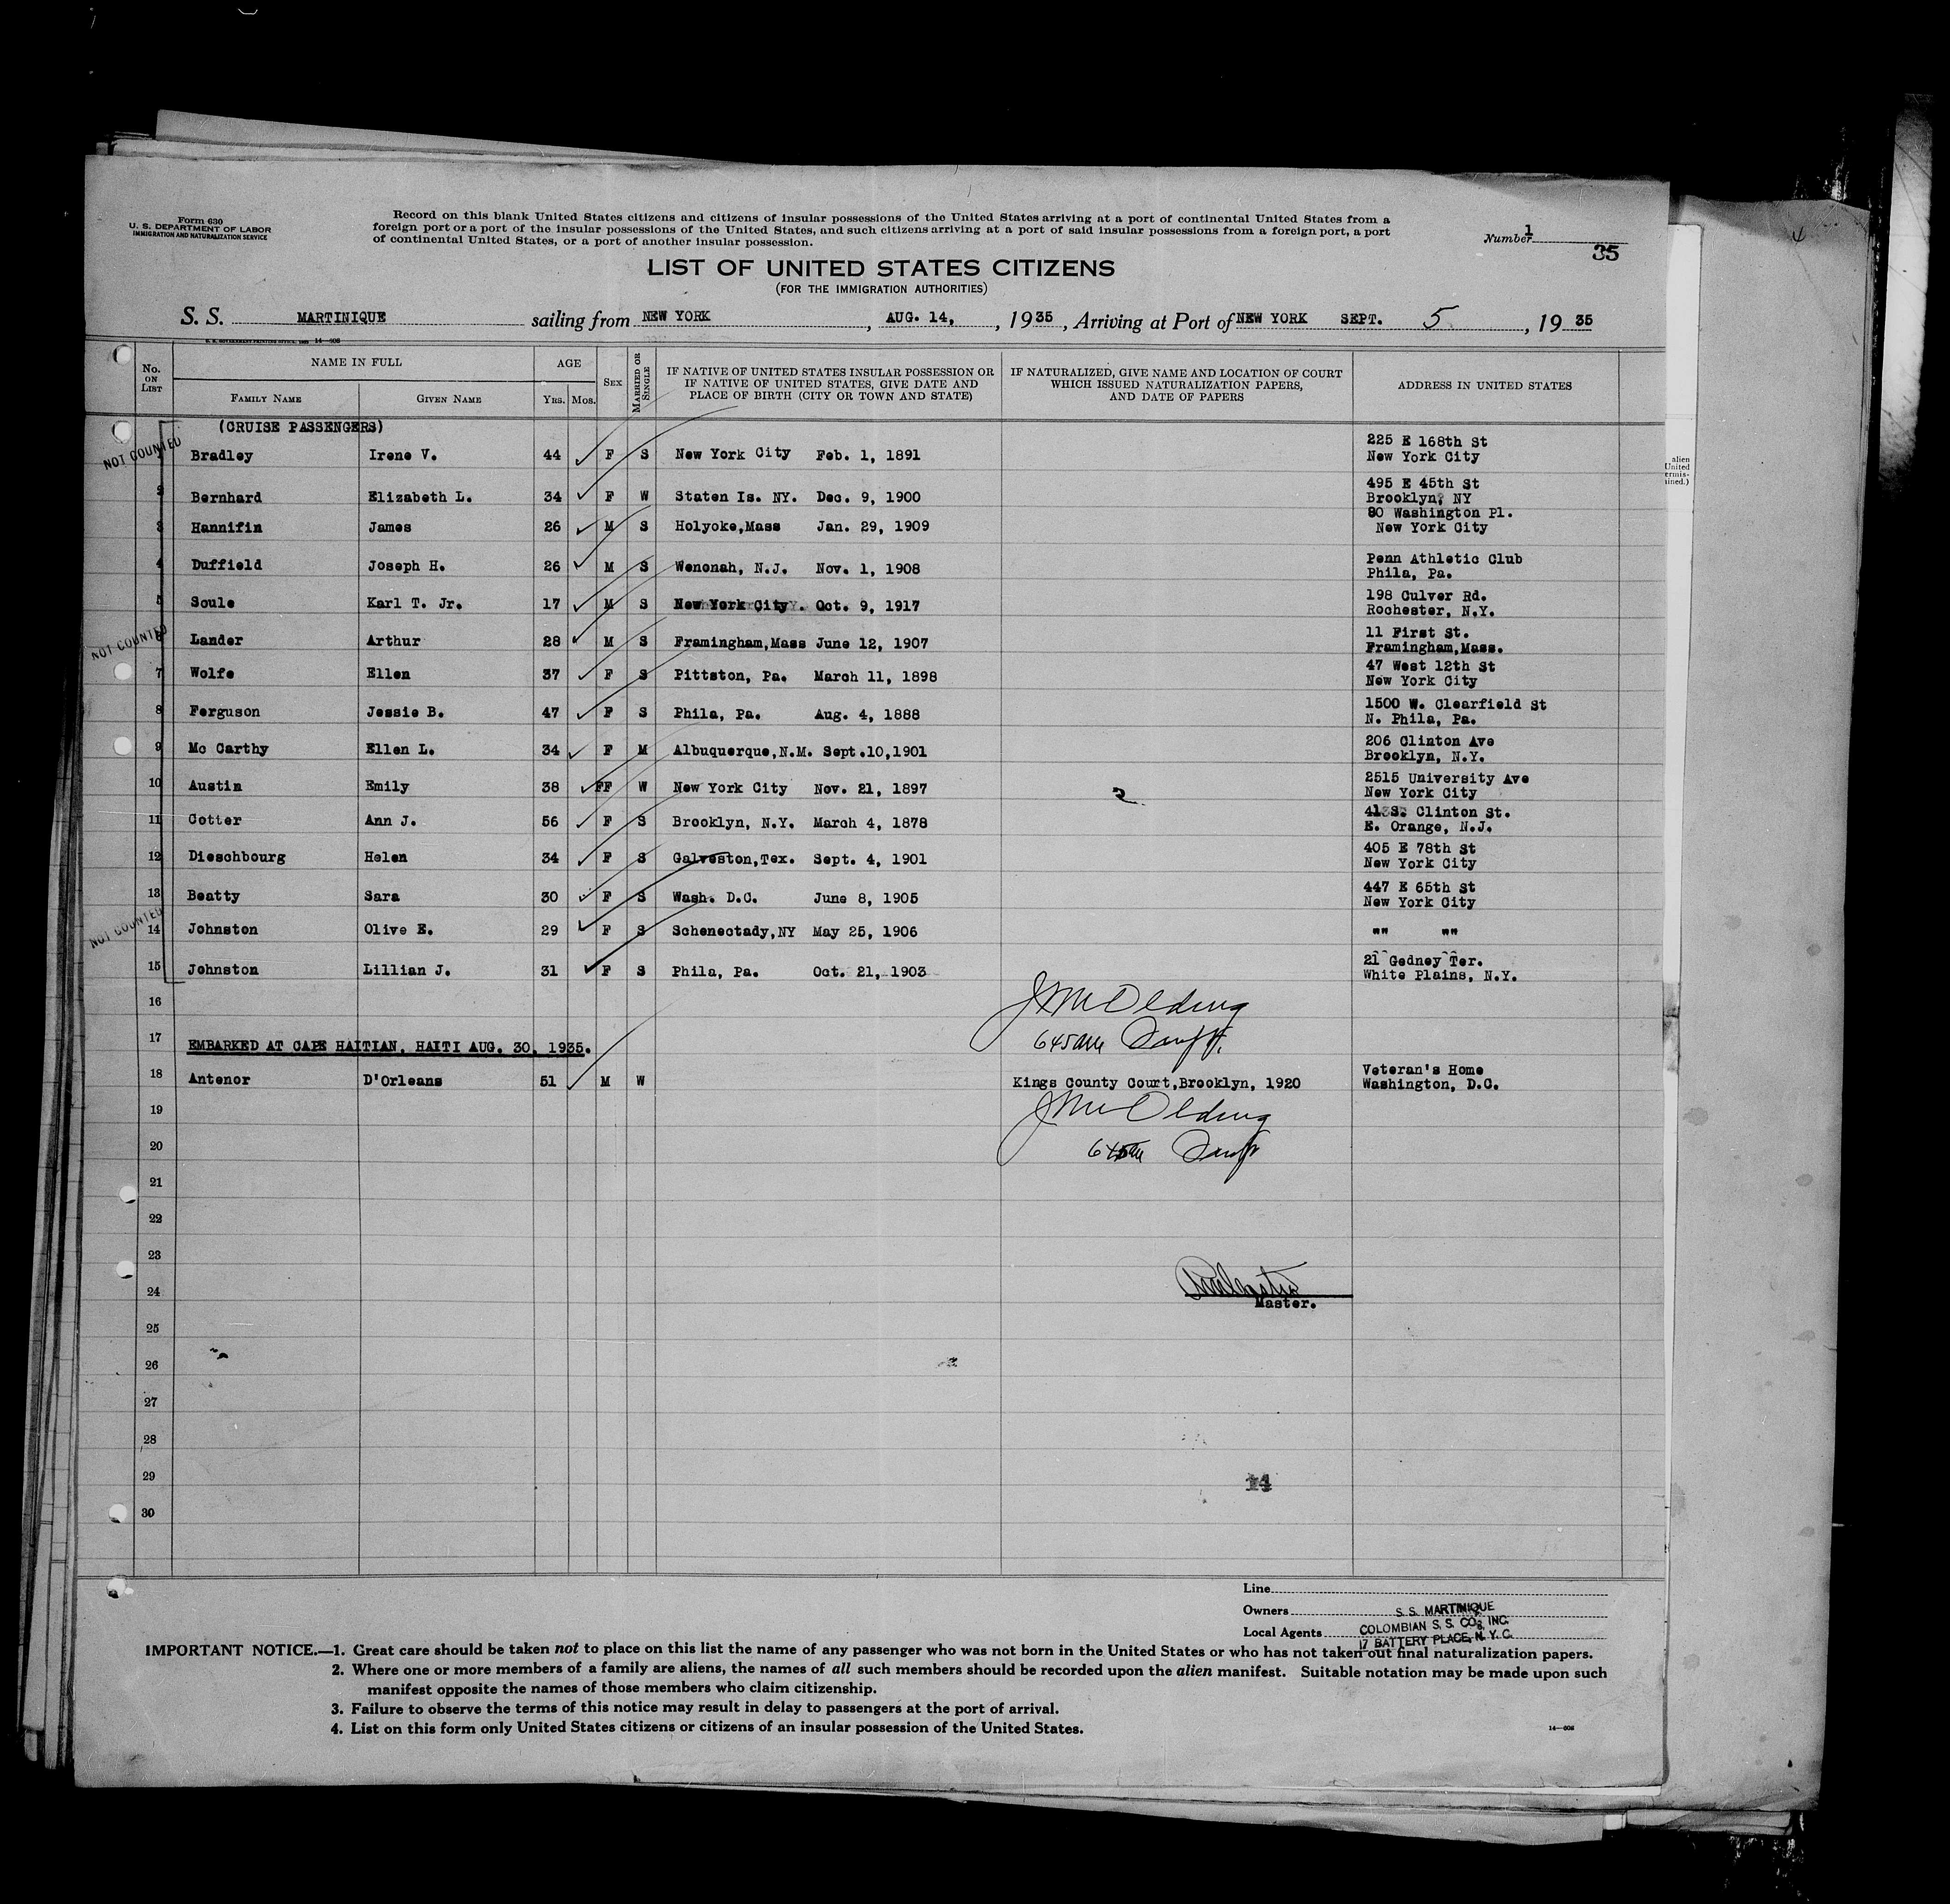 Form 630
U. S. DEPARTMENT OF LABOR
IMMIGRATION AND NATURALIZATION SERVICE
Record on this blank United States citizens and citizens of insular possessions of the United States arriving at a port of continental United States from a
foreign port or a port of the insular possessions of the United States, and such citizens arriving at a port of said insular possessions from a foreign port, a port
of continental United States, or a port of another insular possession.
Number 1
35
LIST OF UNITED STATES CITIZENS
(FOR THE IMMIGRATION AUTHORITIES)
S. S. MARTINIQUE sailing from NEW YORK, AUG. 14, , 1935, Arriving at Port of NEW YORK SEPT. 5, 1935
No. ON LIST
NAME IN FULL
FAMILY NAME
GIVEN NAME
AGE
YRS. MOS.
SEX
MARRIED OR SINGLE
IF NATIVE OF UNITED STATES INSULAR POSSESSION OR
IF NATIVE OF UNITED STATES, GIVE DATE AND
PLACE OF BIRTH (CITY OR TOWN AND STATE)
IF NATURALIZED, GIVE NAME AND LOCATION OF COURT
WHICH ISSUED NATURALIZATION PAPERS,
AND DATE OF PAPERS
ADDRESS IN UNITED STATES
(CRUISE PASSENGERS)
NOT COUNTED
1 Bradley Irene V. 44 F S New York City Feb. 1, 1891 225 E 168th St
New York City
2 Bernhard Elizabeth L. 34 F W Staten Is. NY. Dec. 9, 1900 495 E 45th St
Brooklyn, NY
3 Hannifin James 26 M S Holyoke,Mass Jan. 29, 1909 80 Washington Pl.
New York City
4 Duffield Joseph H. 26 M S Wenonah, N.J. Nov. 1, 1908 Penn Athletic Club
Phila, Pa.
5 Soule Karl T. Jr. 17 M S New York City. Oct. 9, 1917 198 Culver Rd.
Rochester, N.Y.
NOT COUNTED
6 Lander Arthur 28 M S Framingham,Mass June 12, 1907 11 First St.
Framingham,Mass.
7 Wolfe Ellen 37 F S Pittston, Pa. March 11, 1898 47 West 12th St
New York City
8 Ferguson Jessie B. 47 F S Phila, Pa. Aug. 4, 1888 1500 W. Clearfield St
N. Phila, Pa.
9 Mc Carthy Ellen L. 34 F M Albuquerque,N.M. Sept.10,1901 206 Clinton Ave
Brooklyn, N.Y.
10 Austin Emily 38 FF W New York City Nov. 21, 1897 2515 University Ave
New York City
11 Cotter Ann J. 56 F S Brooklyn, N.Y. March 4, 1878 41 S. Clinton St.
E. Orange, N.J.
12 Dieschbourg Helen 34 F S Galveston,Tex. Sept. 4, 1901 405 E 78th St
New York City
13 Beatty Sara 30 F S Wash. D.C. June 8, 1905 447 E 65th St
New York City
NOT COUNTED
14 Johnston Olive E. 29 F S Schenectady,NY May 25, 1906 "" ""
15 Johnston Lillian J. 31 F S Phila, Pa. Oct. 21, 1903 21 Gedney Ter.
White Plains, N.Y.
16
17 EMBARKED AT CAPE HAITIAN, HAITI AUG. 30, 1935.
18 Antenor D'Orleans 51 M W Kings County Court,Brooklyn, 1920 Veteran's Home
Washington, D.C.
19
20
21
22
23
24
Master.
25
26
27
28
29 14
30
Line
Owners S. S. MARTINIQUE
Local Agents COLOMBIAN S. S. CO., INC.
17 BATTERY PLACE, N. Y. C.
IMPORTANT NOTICE.—1. Great care should be taken not to place on this list the name of any passenger who was not born in the United States or who has not taken out final naturalization papers.
2. Where one or more members of a family are aliens, the names of all such members should be recorded upon the alien manifest. Suitable notation may be made upon such
manifest opposite the names of those members who claim citizenship.
3. Failure to observe the terms of this notice may result in delay to passengers at the port of arrival.
4. List on this form only United States citizens or citizens of an insular possession of the United States.
14—608